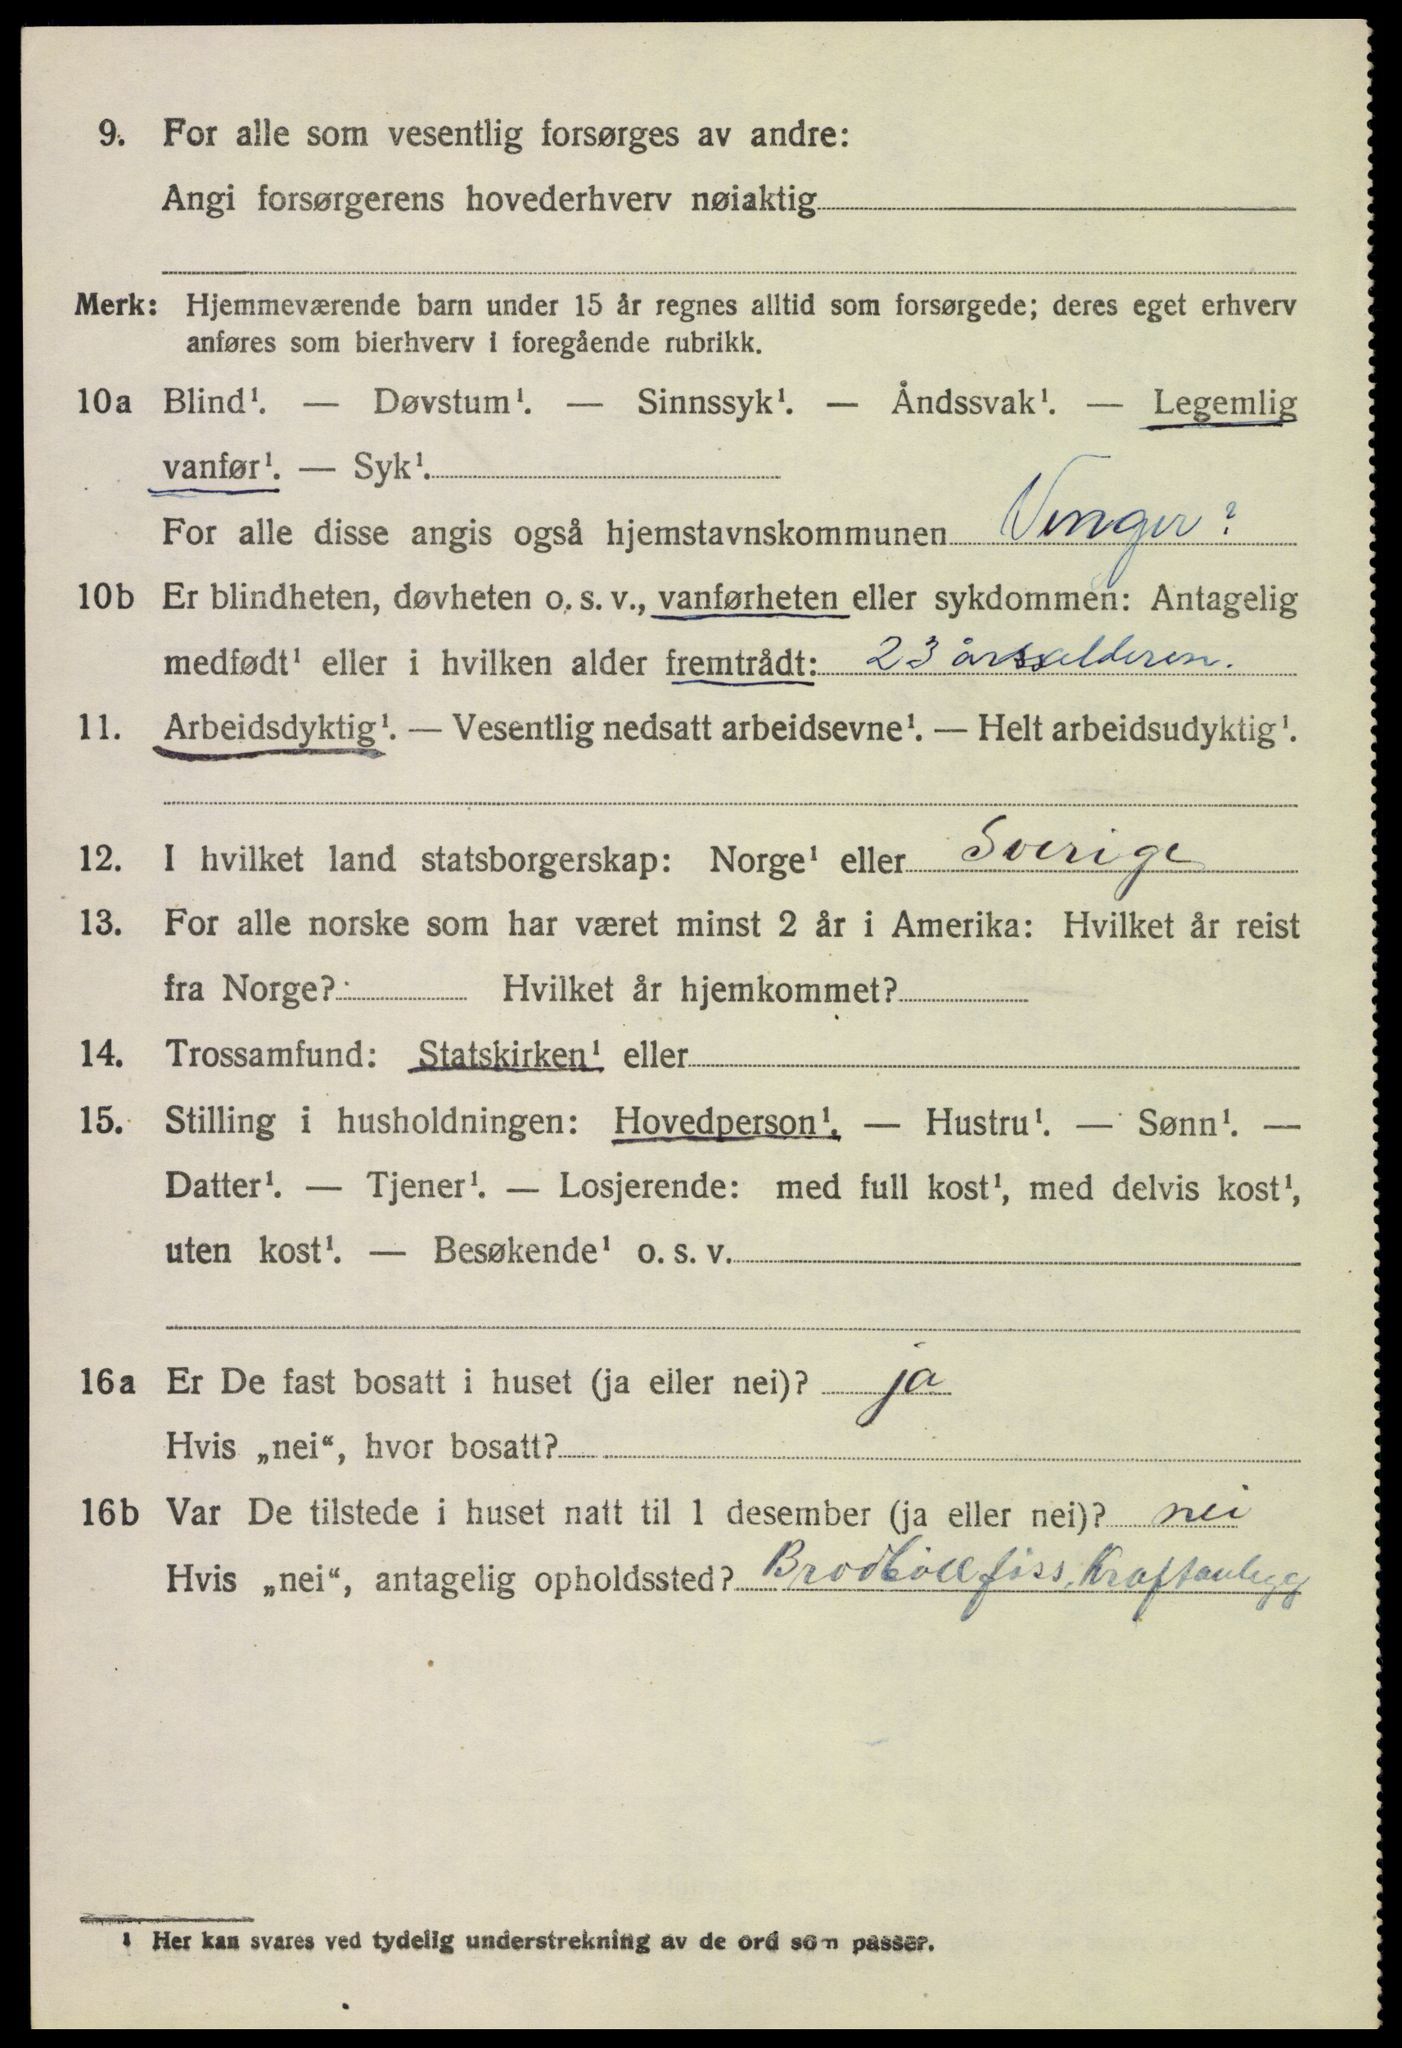 9. For alle som vesentlig forsørges av andre:
Angi forsørgerens hovederhverv nøiaktig
Merk: Hjemmeværende barn under 15 år regnes alltid som forsørgede; deres eget erhverv
anføres som bierhverv i foregående rubrikk.
10a Blind¹. — Døvstum¹. — Sinnssyk¹. — Åndssvak¹. — Legemlig
vanfør¹. — Syk¹.
For alle disse angis også hjemstavnskommunen Vinger?
10b Er blindheten, døvheten o. s. v., vanførheten eller sykdommen: Antagelig
medfødt¹ eller i hvilken alder fremtrådt: 23 årsalderen.
11. Arbeidsdyktig¹. — Vesentlig nedsatt arbeidsevne¹. — Helt arbeidsudyktig¹.
12. I hvilket land statsborgerskap: Norge¹ eller Sverige
13. For alle norske som har været minst 2 år i Amerika: Hvilket år reist
fra Norge? Hvilket år hjemkommet?
14. Trossamfund: Statskirken¹ eller
15. Stilling i husholdningen: Hovedperson¹. — Hustru¹. — Sønn¹. —
Datter¹. — Tjener¹. — Losjerende: med full kost¹, med delvis kost¹,
uten kost¹. — Besøkende¹ o. s. v.
16a Er De fast bosatt i huset (ja eller nei)? ja
Hvis „nei“, hvor bosatt?
16b Var De tilstede i huset natt til 1 desember (ja eller nei)? nei
Hvis „nei“, antagelig opholdssted? Kraftanlegg
¹ Her kan svares ved tydelig understrekning av de ord som passer.